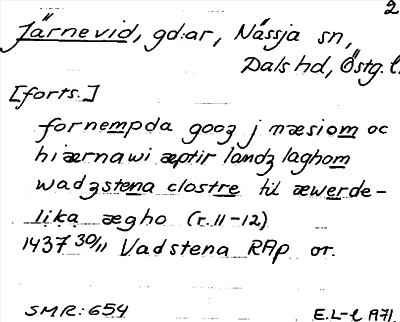 2
Järnevid, gd:ar, Nässja sn,
Dals hd, Östg. l.
[forts.]
fornempda gooʒ j mæsiom oc
hiærnawi æptir landʒ laghom
wadʒstena clostre til æwerde-
lika ægho (r. 11-12)
1437 30/11 Vadstena RAp or.
SMR: 654
E.L-l A71